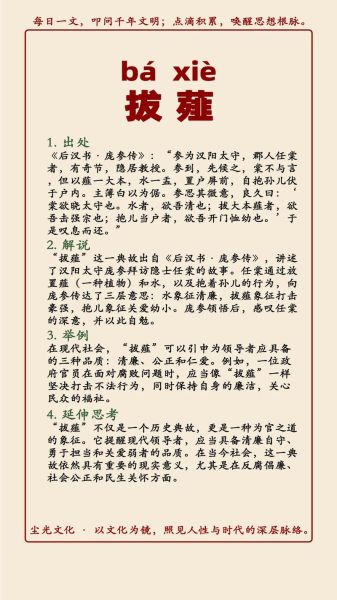 每日一文，叩问千年文明；点滴积累，唤醒思想根脉。
bá xiè
拔薤
1. 出处
《后汉书·庞参传》：“参为汉阳太守，郡人任棠
者，有奇节，隐居教授。参到，先候之，棠不与言
，但以薤一大本，水一盂，置户屏前，自抱孙儿伏
于户内。主簿白以为倨。参思其微意，良久曰：‘
棠欲晓太守也。水者，欲吾清也；拔大本薤者，欲
吾击强宗也；抱儿当户者，欲吾开门恤幼也。’于
是叹息而还。”
2. 解说
“拔薤”这一典故出自《后汉书·庞参传》，讲述
了汉阳太守庞参拜访隐士任棠的故事。任棠通过放
置薤（一种植物）和水，以及抱着孙儿的行为，向
庞参传达了三层意思：水象征清廉，拔薤象征打击
豪强，抱儿象征关爱幼小。庞参领悟后，感叹任棠
的深意，并以此自勉。
3. 举例
在现代社会，“拔薤”可以引申为领导者应具备
的三种品质：清廉、公正和仁爱。例如，一位政
府官员在面对腐败问题时，应当像“拔薤”一样
坚决打击不法行为，同时保持自身的廉洁，关心
民众的福祉。
4. 延伸思考
“拔薤”不仅是一个历史典故，更是一种为官之道
的象征。它提醒现代领导者，应当具备清廉自守、
勇于担当和关爱弱者的品质。在当今社会，这一典
故依然具有重要的现实意义，尤其是在反腐倡廉、
社会公正和民生关怀方面。
尘光文化 · 以文化为镜，照见人性与时代的深层脉络。